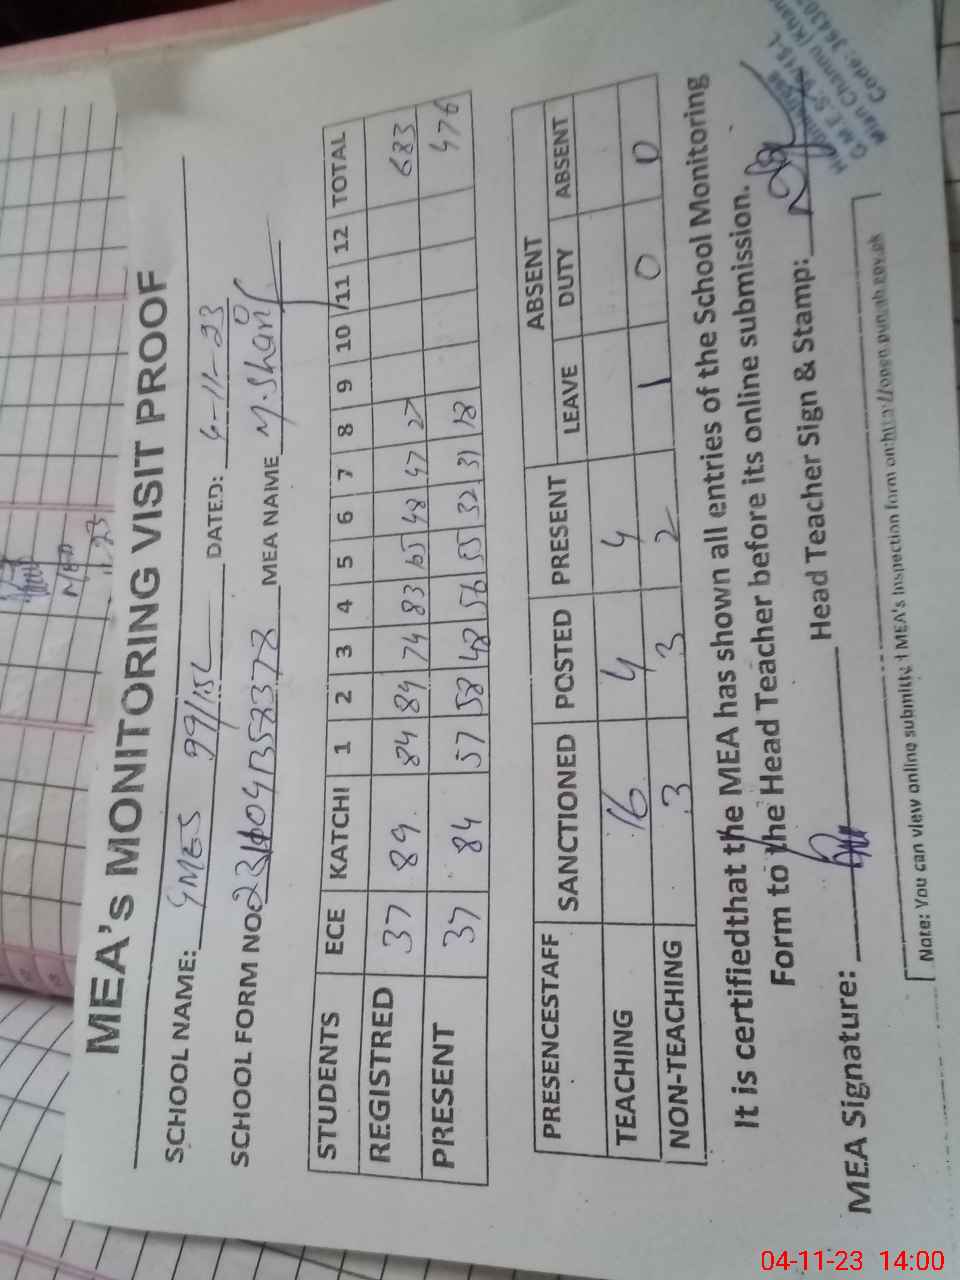 MEA's MONITORING VISIT PROOF
SCHOOL NAME: GMES 99/15L DATED: 4-11-23
SCHOOL FORM NO. MEA NAME M.Sharif
STUDENTS ECE KATCHI 1 2 3 4 5 6 7 8 9 10 11 12 TOTAL
REGISTRED 37 89 84 84 74 83 65 48 47 27 683
PRESENT 37 84 57 58 48 56 55 32 31 18 476
PRESENCESTAFF SANCTIONED POSTED PRESENT ABSENT
LEAVE DUTY ABSENT
TEACHING 16 4 4
NON-TEACHING 3 3 2 1 0 0
It is certifiedthat the MEA has shown all entries of the School Monitoring
Form to the Head Teacher before its online submission.
MEA Signature: Head Teacher Sign & Stamp:
Note: You can view online submitted MEA's Inspection form on:http://open.punjab.gov.pk
Mian Channu
Code:
23
04-11-23 14:00